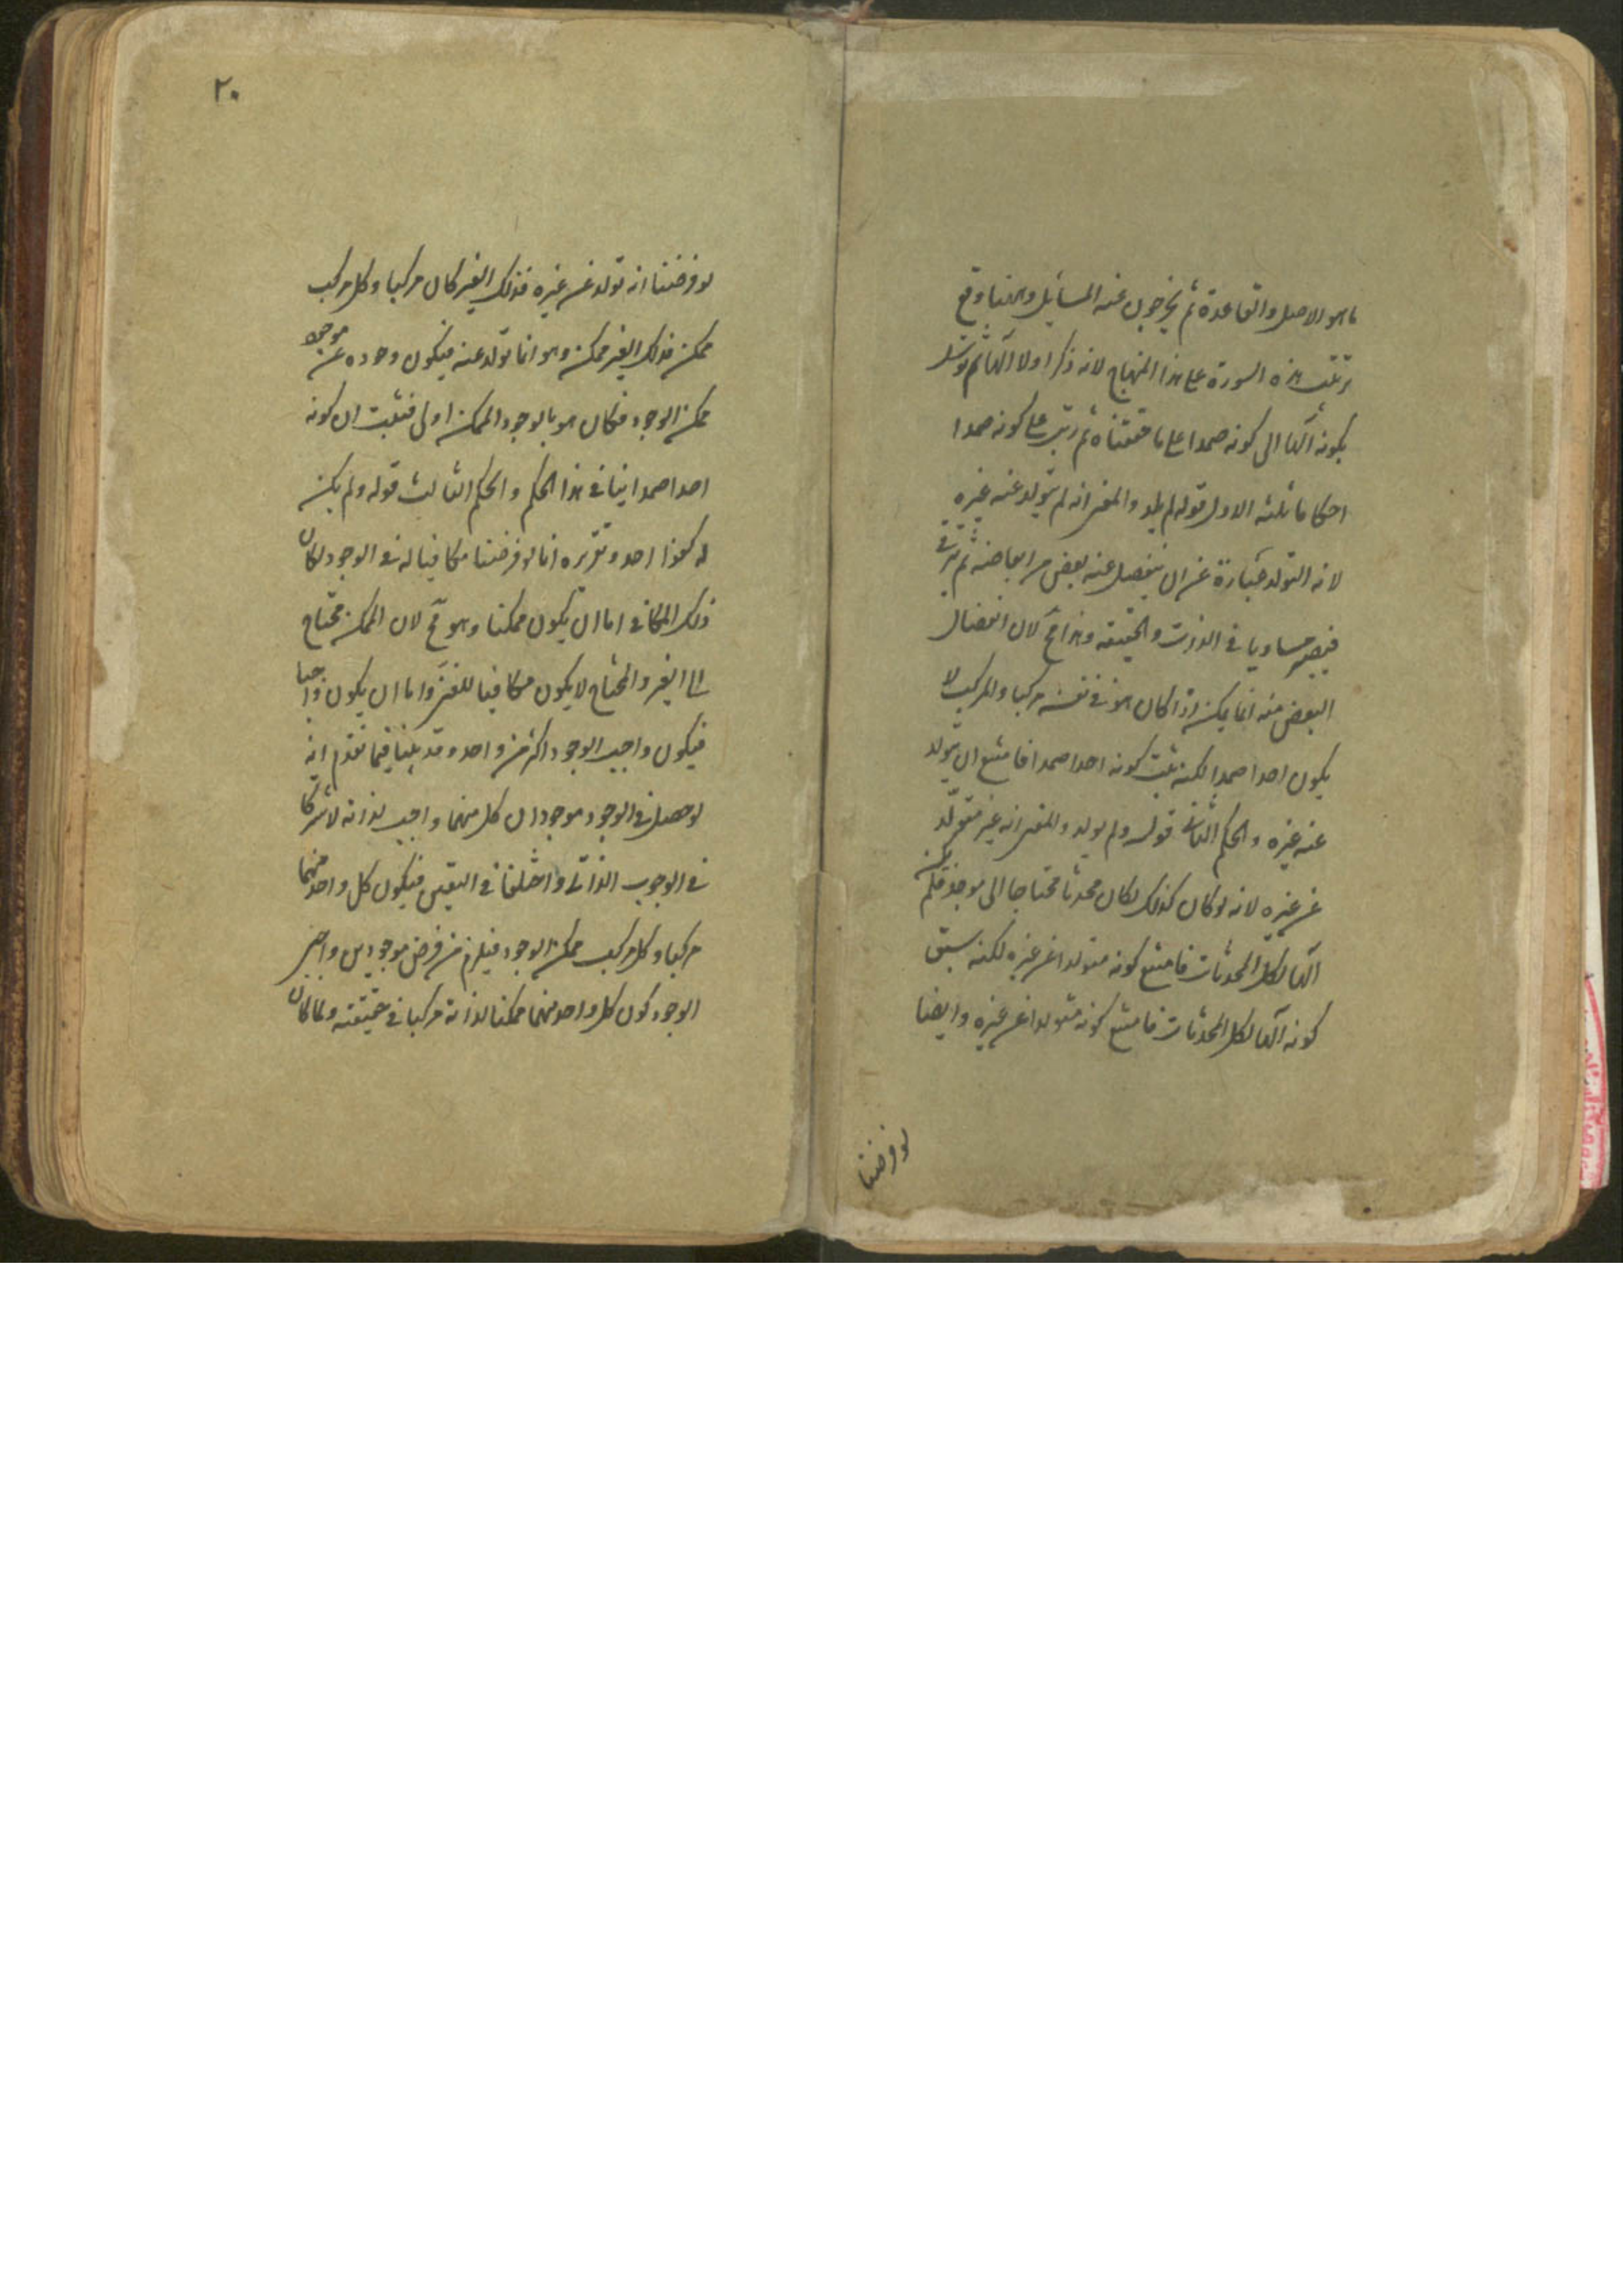 ما هو الاصل والقاعدة ثم يخرجون عنه المسايل وههنا وقع
ترتيب هذه السورة على هذا المنهاج لانه ذكر اولا الها ثم توسل
بكونه الها الى كونه صمدا على ما حققناه ثم رتب على كونه صمدا
احكاما ثلثه الاول قوله لم يلد والمعنى انه لم يتولد عنه غيره
لانه التولد عبارة عن ان ينفصل عنه بعض من ابعاضه ثم يترقى
فيصير مساويا فى الذات والحقيقه وهذا مح لان انفصال
البعض منه انما يمكن اذا كان هو فى نفسه مركبا والمركب لا
يكون احدا صمدا لكنه ثبت كونه احدا صمدا فامتنع ان يتولد
عنه غيره والحكم الثانى قوله ولم يولد والمعنى انه غير متولد
عن غيره لانه لو كان كذلك لكان محدثا محتاجا الى موجد فلم يكن
الها لكل المحدثات فامتنع كونه متولدا عن غيره لكنه سبق
كونه الها لكل المحدثات فامتنع كونه متولدا عن غيره وايضا
لو فرضنا
٢٠
لو فرضنا انه تولد عن غيره فذلك الغير كان مركبا وكل مركب
ممكن فذلك الغير ممكن وهو انما تولد عنه فيكون وجوده عن موجود
ممكن الوجود فكان هو بالوجود الممكن اولى فثبت ان كونه
احدا صمدا ينافى هذا الحكم والحكم الثالث قوله ولم يكن
له كفوا احد وتقريره انا لو فرضنا مكافيا له فى الوجود لكان
ذلك المكافى اما ان يكون ممكنا وهو مح لان الممكن محتاج
الى الغير والمحتاج لا يكون مكافيا للغنى واما ان يكون واجبا
فيكون واجب الوجود اكثر من واحد وقد بينا فيما تقدم انه
لو حصل فى الوجود موجودان كل منهما واجب لذاته لاشتركا
فى الوجوب الذاتى واختلفا فى التعين فيكون كل واحد منهما
مركبا وكل مركب ممكن الوجود فيلزم من فرض موجودين واجبى
الوجود كون كل واحد منهما ممكنا لذاته مركبا فى حقيقته ولما كان